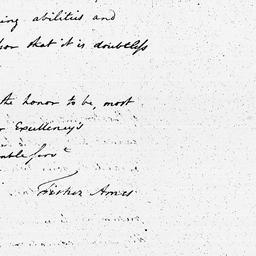 ing abilities and
that it is doubtless
the honor to be, most
Excellency's
ble servt
Fisher Ames